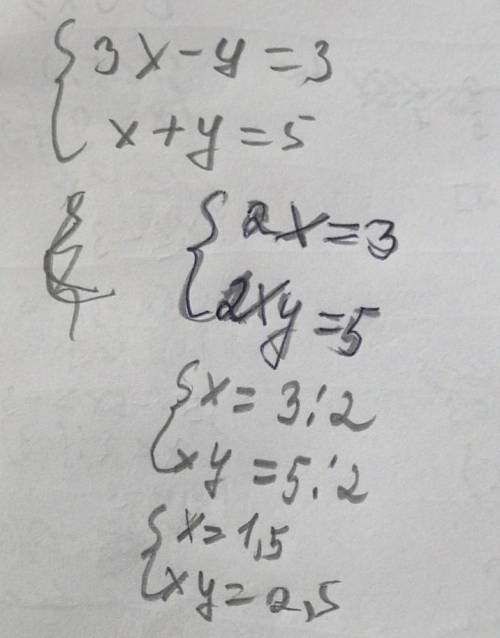 3x-y=3
x+y=5
2x=3
2xy=5
x=3:2
xy=5:2
x=1,5
xy=2,5